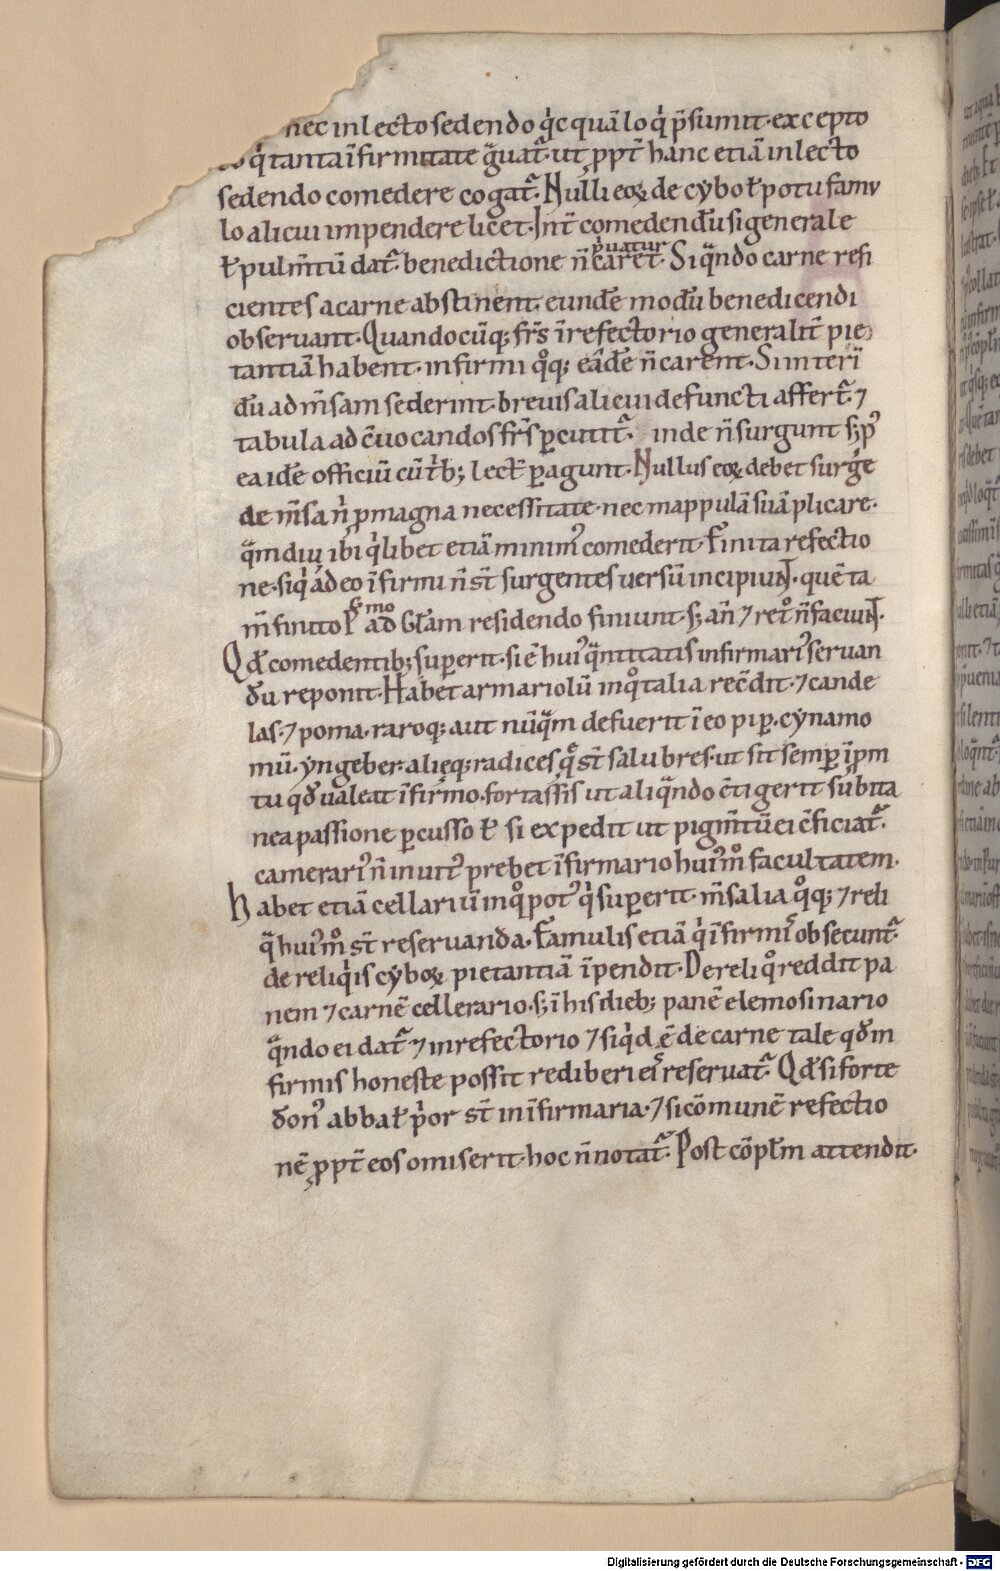 nec in lecto sedendo q̇c quā loq̇ p̄sumit. excepto
q̇ tanta īfirmitate g̈uat̃. ut ꝓpt̃ hanc etiā in lecto
sedendo comedere cogat̃. Nulli eoꝝ de cybo ł potu famu
lo alicui impendere licet. Int̃ comedendū si generale
ł pulm̄tū dat̃. benedictione n̄ caret. Si q̈ndo carne refi
p̍uatur
cientes a carne abstinent. eundē modū benedicendi
obseruant. Quandocūq; fr̄s ī refectorio generalit̃ pie
tantiā habent. infirmi qͦq; eādē n̄ carent. Si interī
dū ad m̄sam sederint. breuis alicui defuncti affert̃. ⁊
tabula ad ēuocandos fr̄s ꝑcutit̃. inde n̄ surgunt s; pꝰ
ea idē officiū cū t̍b; lect̃ ꝑagunt. Nullus eoꝝ debet surg̃e
de m̄sa n̍ ꝓ magna necessitate. nec mappulā suā plicare.
q̈mdiu ibi q̍libet etiā minimꝰ comederit. Finita refectio
ne. siq̍ adeo īfirmi n̄ st̄ surgentes uersū incipiuNT. quē ta
m̄ finito P̍mo ad Gl̄am residendo finiunt. s; an̄ ⁊ retͦ n̄ faciuNT.
Qd̄ comedentib; suꝑerit. si ē huiꝰ q̈ntitatis infirmariꝰ seruan
dū reponit. Habet armariolū in qͦ talia recōdit. ⁊ cande
las. ⁊ poma. raroq; aut nūq̈m defuerit ī eo piꝑ. cynamo
mū. yngeber. alieq; radices q̄ st̄ salubres. ut sit semꝑ īpm
tu qd̄ ualeat īfirmo. fortassis ut aliq̈ndo ctīgerit subita
nea passione ꝑcusso ł si expedit ut pigm̄tū ei cficiat̃.
camerariꝰ n̄ inuitꝰ prebet īfirmario huiꝰmͦ facultatem.
Habet etiā cellariū in qͦ potꝰ q̍ suꝑerit. m̄salia qͦq; ⁊ reli
q̈ huiꝰmͦ st̄ reseruanda. Famulis etiā q̍ īfirmis obsecunt̃.
de reliq̍is cyboꝝ pietantiā īpendit. De reliqͦ reddit pa
nem ⁊ carnē cellerario. s; ī his dieb; panē elemosinario
q̈ndo ei dat̃ ⁊ in refectorio ⁊ siq̍d ē de carne tale qd̄ in
firmis honeste possit rediberi eis reseruat̃. Qd̄ si forte
donꝰ abba ł p̍or st̄ in īfirmaria. ⁊ si cōmunē refectio
nē ꝓpt̃ eos omiserit. hoc n̄ notat̃. Post cōpl̄m attendit.
Digitalisierung gefördert durch die Deutsche Forschungsgemeinschaft - DFG